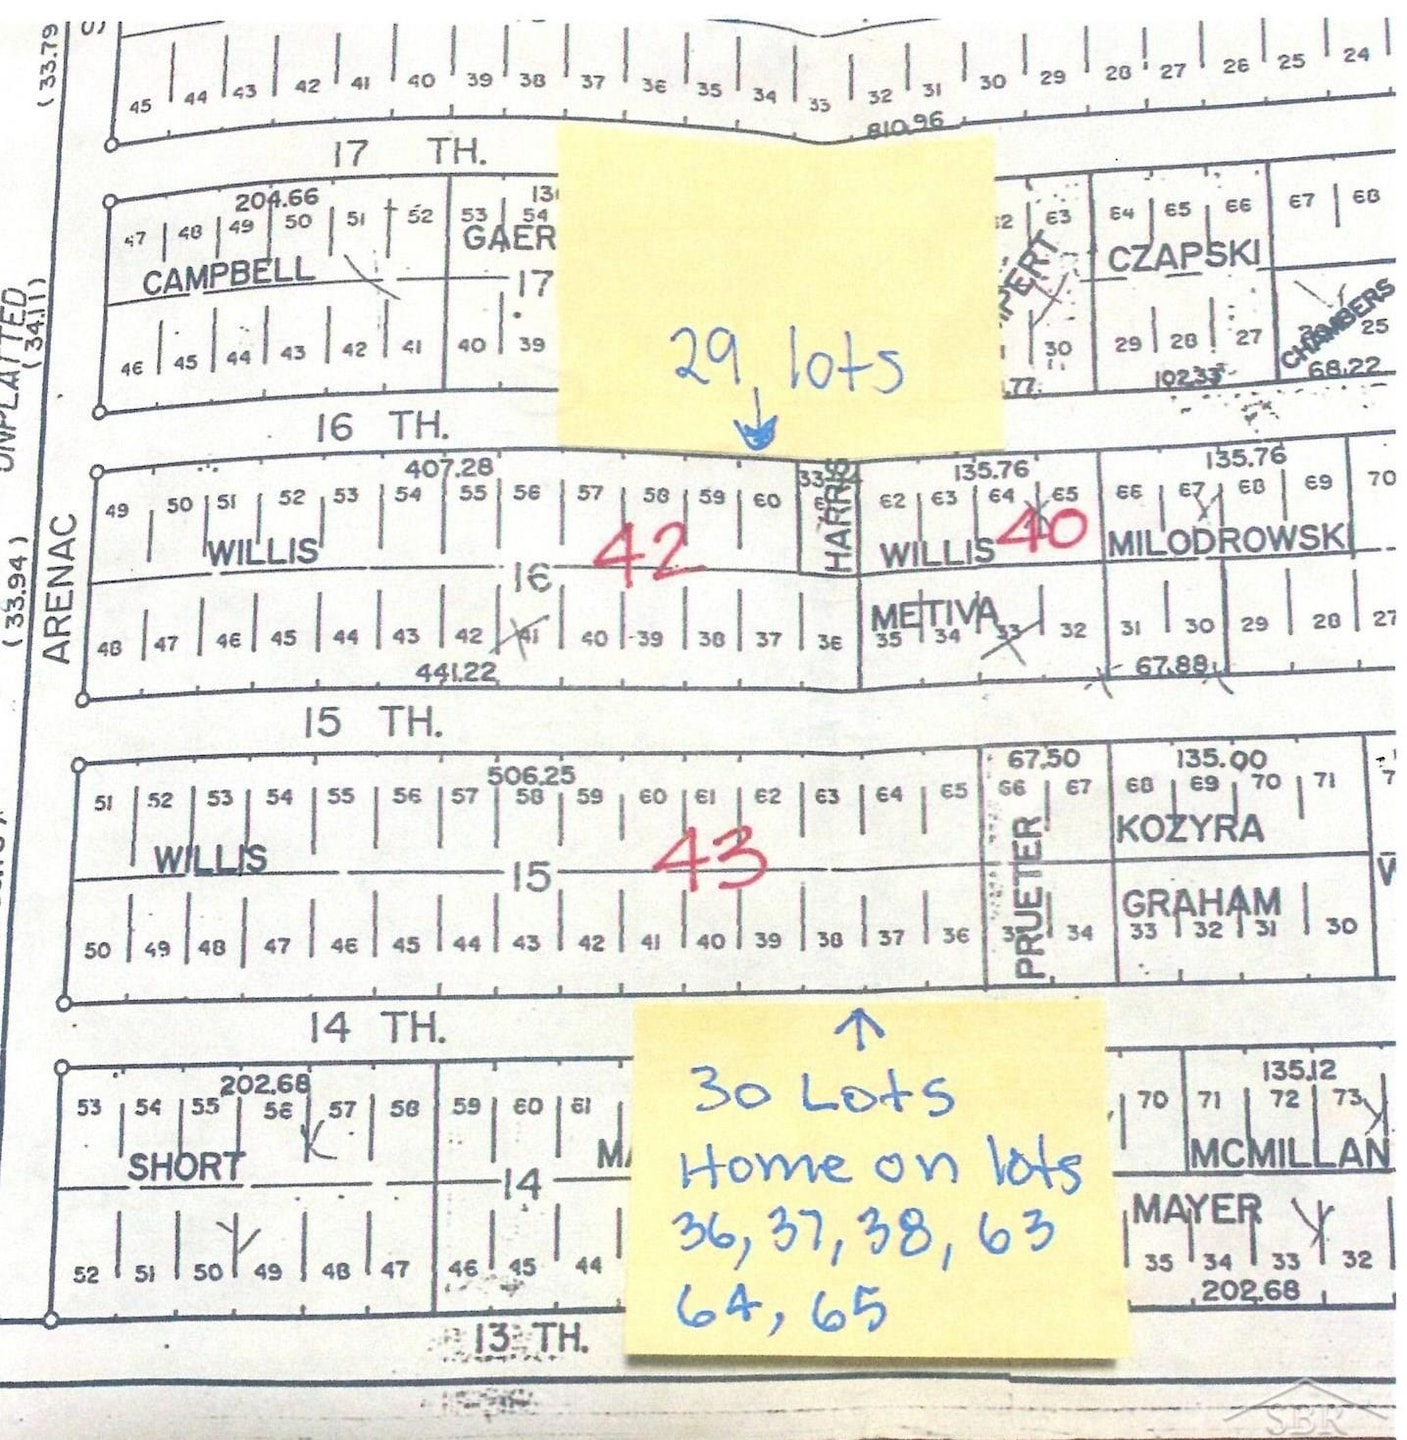 (33.79
45 44 43 42 41 40 39 38 37 36 35 34 33 32 31 30 29 28 27 26 25 24
810.96
17 TH.
204.66
47 48 49 50 51 52 53 54 63 64 65 66 67 68
CAMPBELL GAER CZAPSKI
17
CHAMBERS
46 45 44 43 42 41 40 39 30 29 28 27 25
102.33 68.22
29 lots
UNPLATTED
(34.11)
16 TH.
407.28 135.76 135.76
49 50 51 52 53 54 55 56 57 58 59 60 62 63 64 65 66 67 68 69 70
HARRIS
WILLIS 42 WILLIS 40 MILODROWSKI
16
METIVA
48 47 46 45 44 43 42 41 40 39 38 37 36 35 34 33 32 31 30 29 28 27
441.22 67.88
ARENAC
(33.94)
15 TH.
506.25 67.50 135.00
51 52 53 54 55 56 57 58 59 60 61 62 63 64 65 66 67 68 69 70 71
WILLIS 43 KOZYRA
15
PRUETER
GRAHAM
50 49 48 47 46 45 44 43 42 41 40 39 38 37 36 34 33 32 31 30
14 TH.
202.68 135.12
53 54 55 56 57 58 59 60 61 70 71 72 73
SHORT MCMILLAN
14
MAYER
52 51 50 49 48 47 46 45 44 35 34 33 32
202.68
30 Lots
Home on lots
36, 37, 38, 63
64, 65
13 TH.
SBR